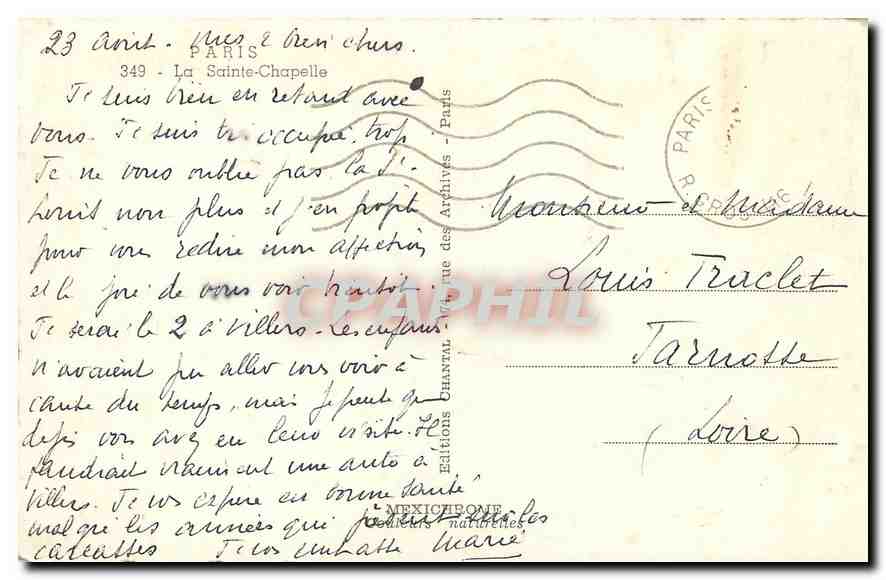 23 avril. Mes 2 bien chers.
PARIS
349 - La Sainte-Chapelle
Je suis bien en retard avec
vous. Je suis très occupée, trop
Je ne vous oublie pas. la St
Louis non plus et j'en profite
pour vous redire mon affection
et la joie de vous voir bientôt.
Je serai le 2 à Villers. Les enfants
n'avaient pu aller vous voir à
cause du temps, mais je pense que
depuis vous avez eu leur visite. Il
faudrait vraiment une auto à
Villers. Je vous espère en bonne santé
malgré les années qui pèsent sur les
carcasses Je vous embrasse Marie
Editions CHANTAL 74, rue des Archives - Paris
MEXICHROME
Couleurs naturelles
PARIS
R. CROS
Monsieur et Madame
Louis Traclet
Tarnosse
(Loire)
CPAPHIL